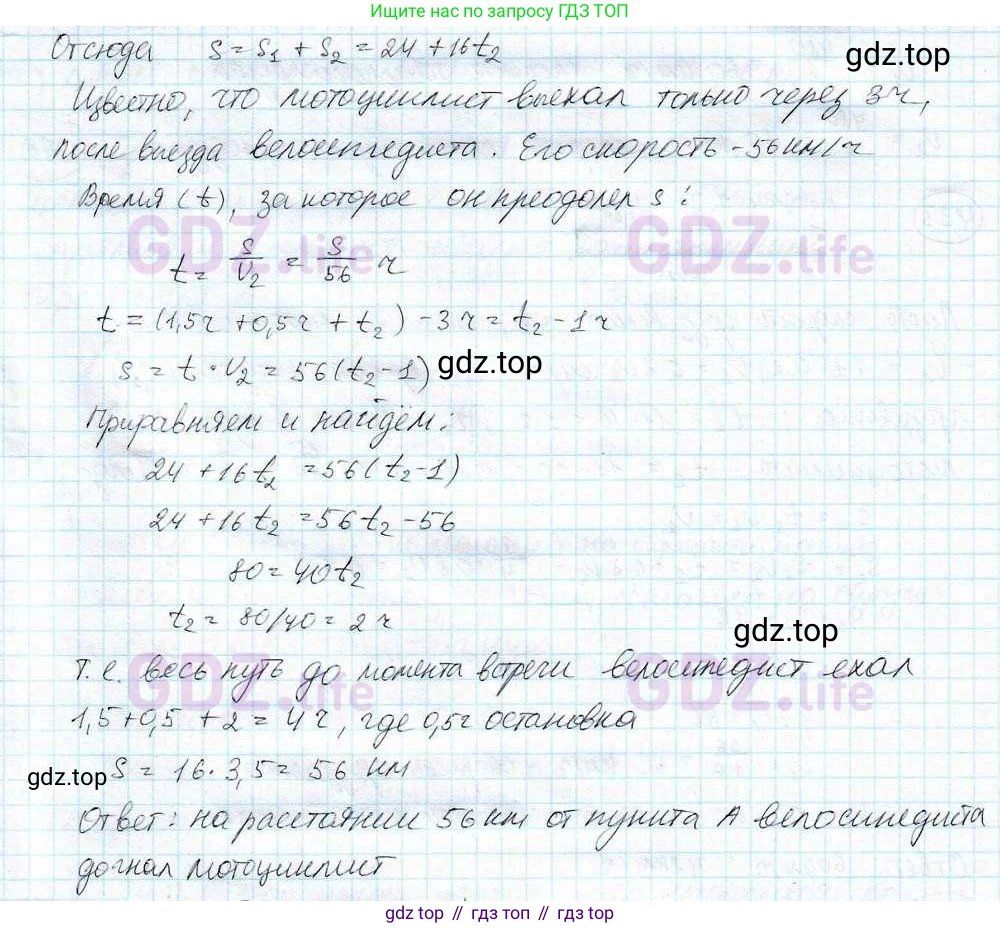 Ищите нас по запросу ГДЗ ТОП
Отсюда S = S₁ + S₂ = 24 + 16t₂
gdz.top
Известно, что мотоциклист выехал только через 3ч,
после выезда велосипедиста. Его скорость - 56 км/ч
Время (t), за которое он преодолел s:
GDZ.life GDZ.life
t = S/V₂ = S/56 ч
t = (1,5ч + 0,5ч + t₂) - 3ч = t₂ - 1ч
s = t · V₂ = 56(t₂ - 1)
gdz.top
Приравняем и найдём:
24 + 16t₂ = 56(t₂ - 1)
24 + 16t₂ = 56t₂ - 56
80 = 40t₂
t₂ = 80/40 = 2 ч
gdz.top
Т.е. весь путь до момента встречи велосипедист ехал
GDZ.life GDZ.life
1,5 + 0,5 + 2 = 4 ч, где 0,5ч остановка
gdz.top
S = 16 · 3,5 = 56 км
Ответ: на расстоянии 56 км от пункта А велосипедиста
догнал мотоциклист
gdz top // гдз топ // gdz top